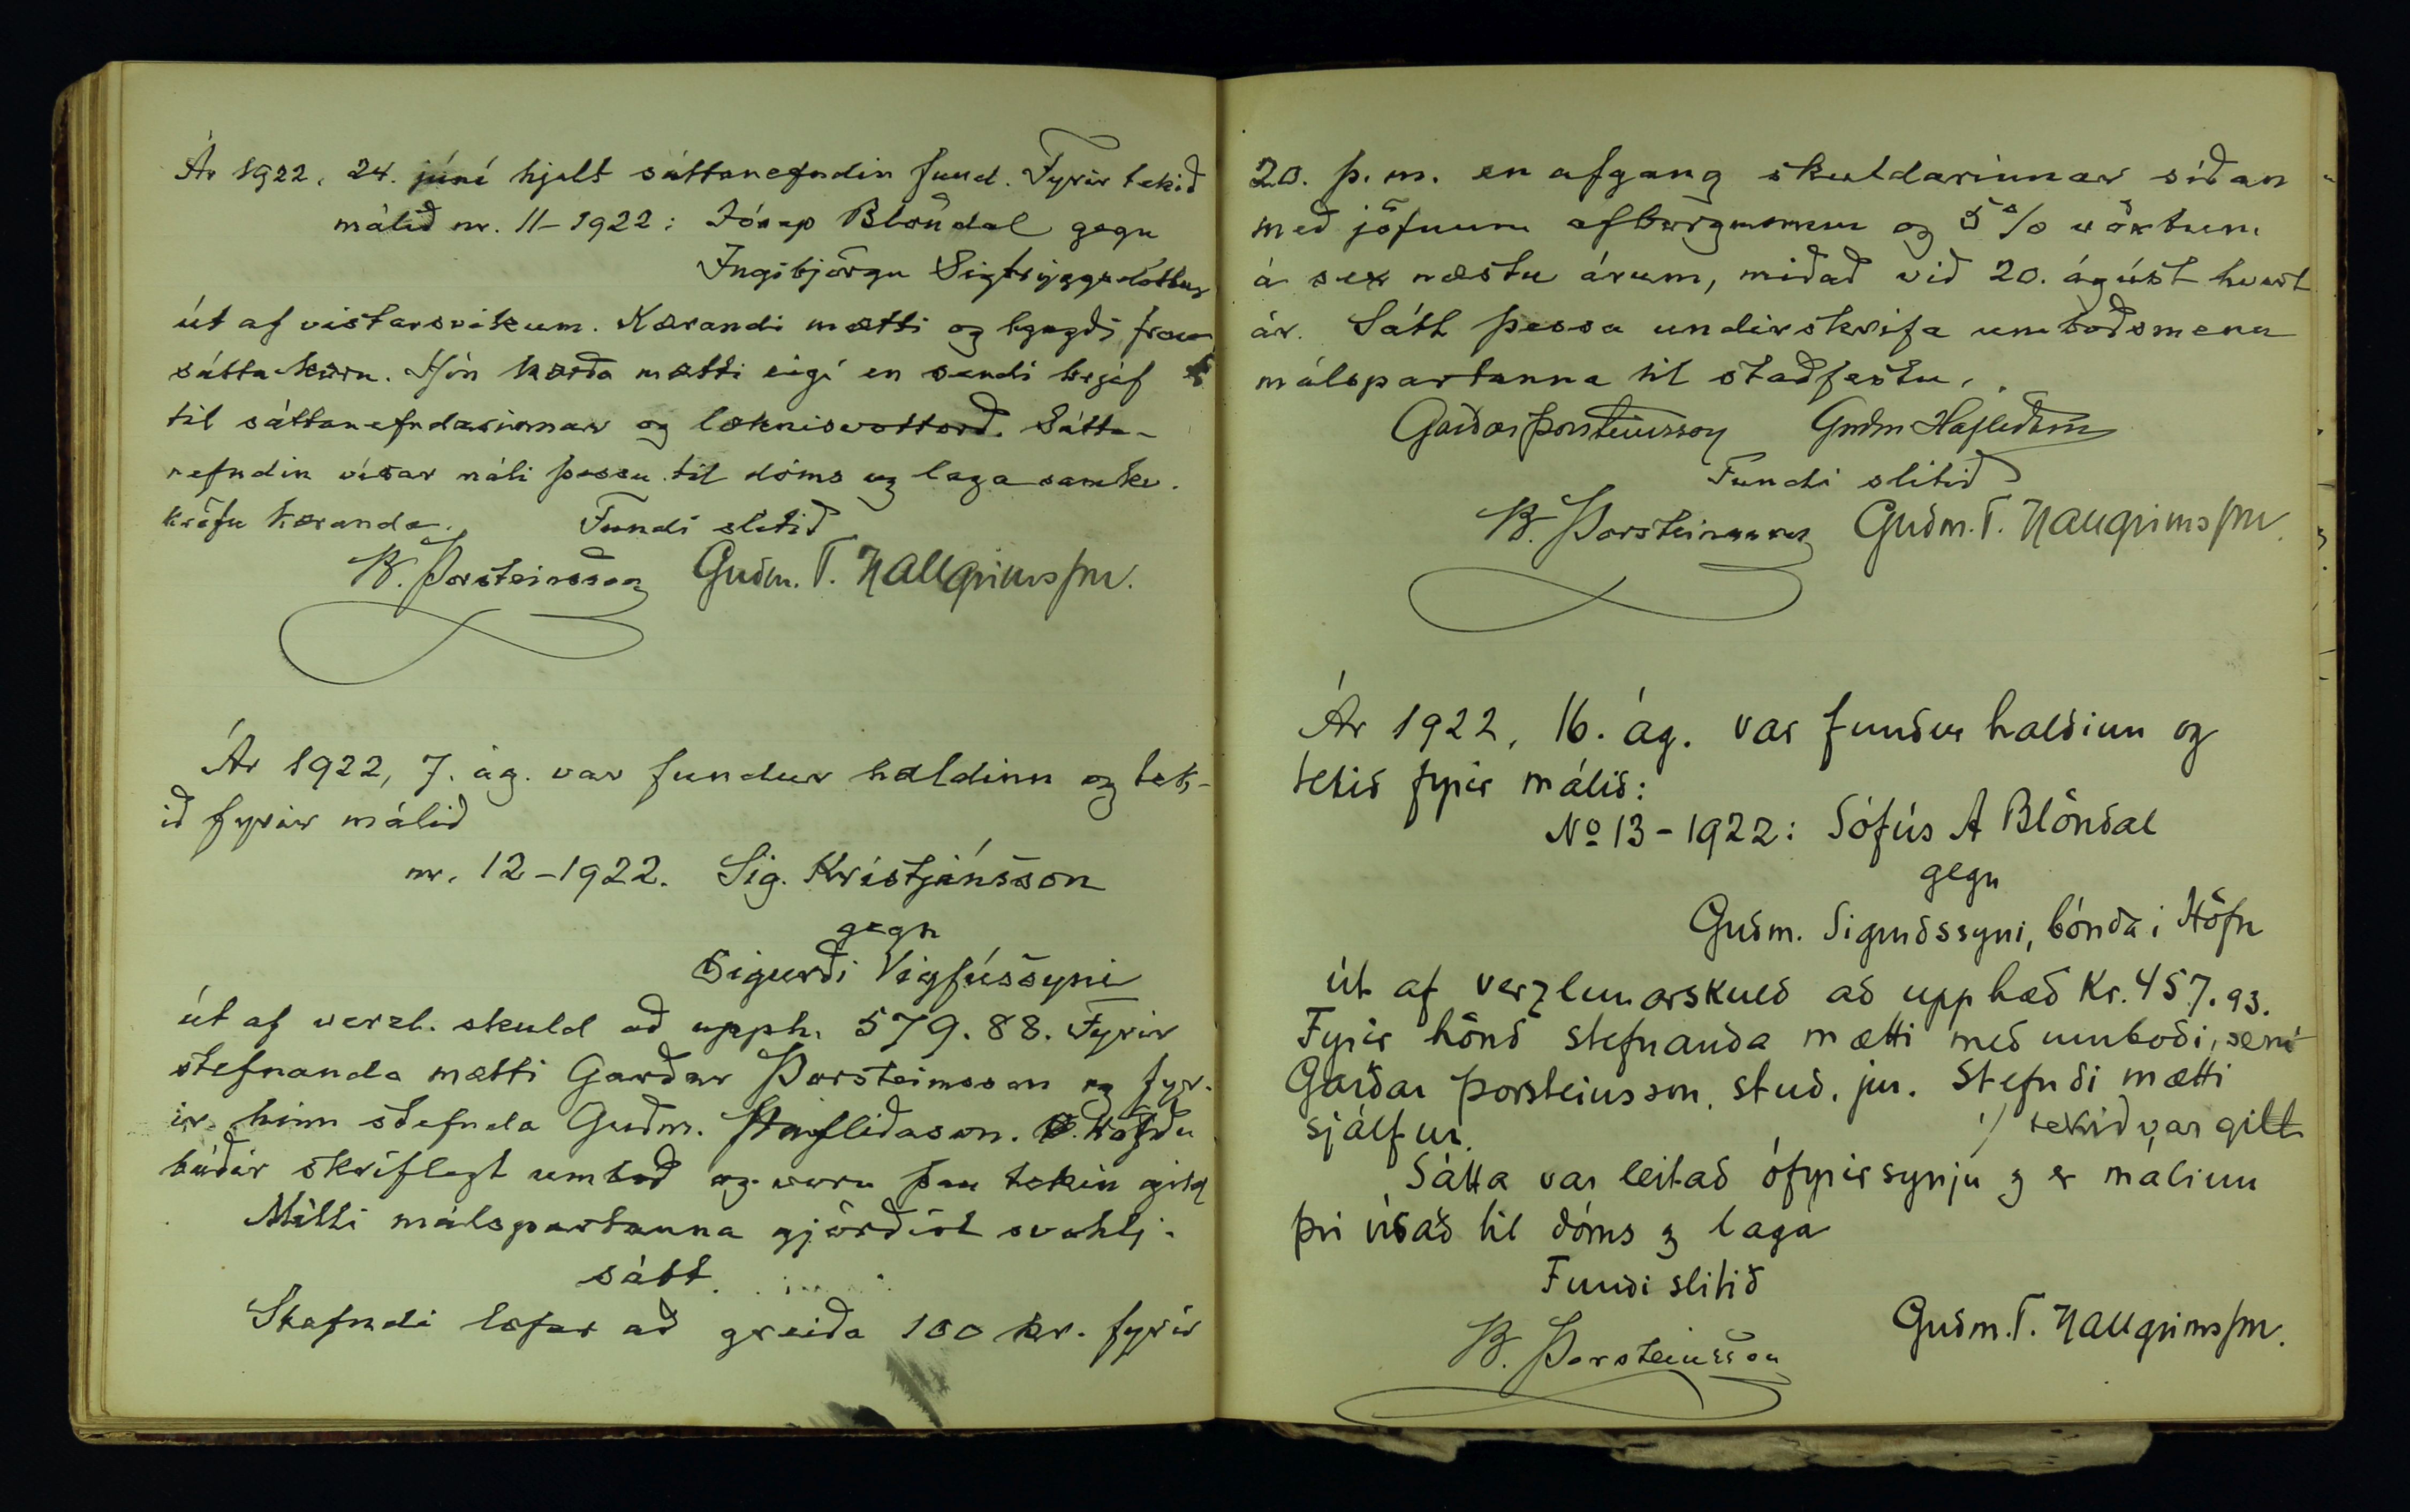 Ár 1922, 24. júní hjelt sáttanefndin fund. Fyrir tekið
málið nr. 11-1922: Jósep Blöndal gegn
Ingibjörgu Sigtryggsdóttur
út af vistarsvikum. Kærandi mætti og lagði fram
sáttakæru. Hin kærða mætti eigi en sendi brjef
til sáttanefndarinnar og læknisvottorð. Sátta-
nefndin vísar máli þessu til dóms og laga samkv.
kröfu kæranda. Fundi slitið
B. Þorsteinsson Guðm. T. Hallgrímsson.
Ár 1922, 7. ág. var fundur haldinn og tek-
ið fyrir málið
nr. 12-1922. Sig. Kristjánsson
gegn
Sigurði Vigfússyni
út af verzl. skuld að upph. 579.88. Fyrir
stefnanda mætti Garðar Þorsteinsson og fyr-
ir hinn stefnda Guðm. Hafliðason. Höfðu
báðir skriflegt umboð og voru þau tekin gild
Milli málspartanna gjörðist svohlj.
sátt.
Stefndi lofar að greiða 100 kr. fyrir
20. þ.m. en afgang skuldarinnar síðan
með jöfnum afborgunum og 5% vöxtum
á sex næstu árum, miðað við 20. ágúst hvert
ár. Sátt þessa undirskrifa umboðsmenn
málspartanna til staðfestu.
Garðar Þorsteinsson Guðm Hafliðason
Fundi slitið
B. Þorsteinsson Guðm. T. Hallgrímsson.
Ár 1922, 16. ág. var fundur haldinn og
tekið fyrir málið:
No 13-1922: Sófús A Blöndal
gegn
Guðm. Sigurðssyni, bónda í Höfn
út af verzlunarskuld að upphæð Kr. 457.93.
Fyrir hönd stefnanda mætti með umboði, sem
Garðar Þorsteinsson, stud. jur. Stefndi mætti
sjálfur. tekið var gilt
Sátta var leitað ófyrirsynju og er málinu
því vísað til dóms og laga
Fundi slitið
B. Þorsteinsson Guðm. T. Hallgrímsson.